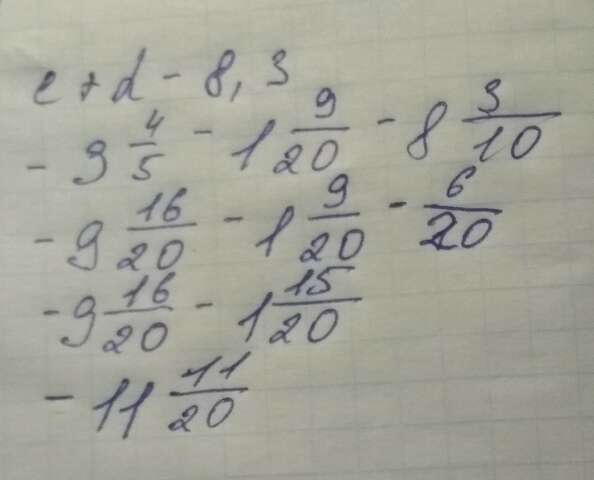 c + d - 8,3
- 9 4/5 - 1 9/20 - 8 3/10
- 9 16/20 - 1 9/20 - 6/20
- 9 16/20 - 1 15/20
- 11 11/20